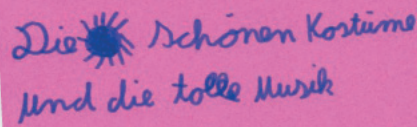 Die schönen Kostüme
und die tolle Musik